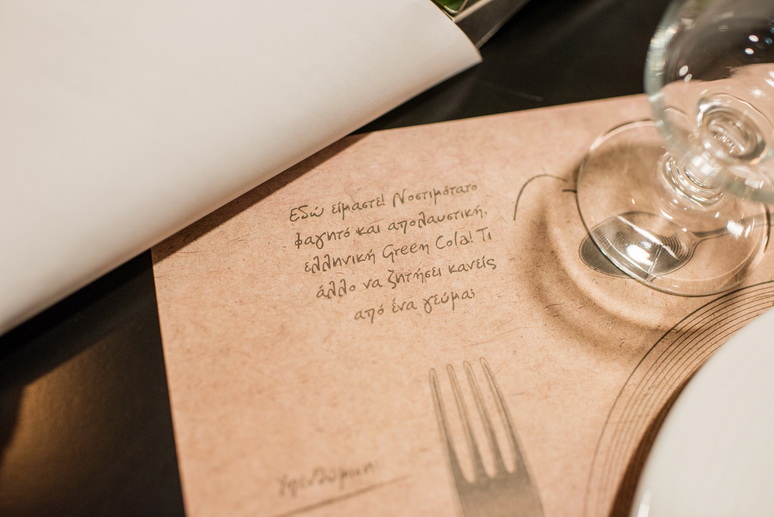 Εδώ είμαστε! Νοστιμότατο
φαγητό και απολαυστική,
ελληνική Green Cola! Τι
άλλο να ζητήσει κανείς
από ένα γεύμα;